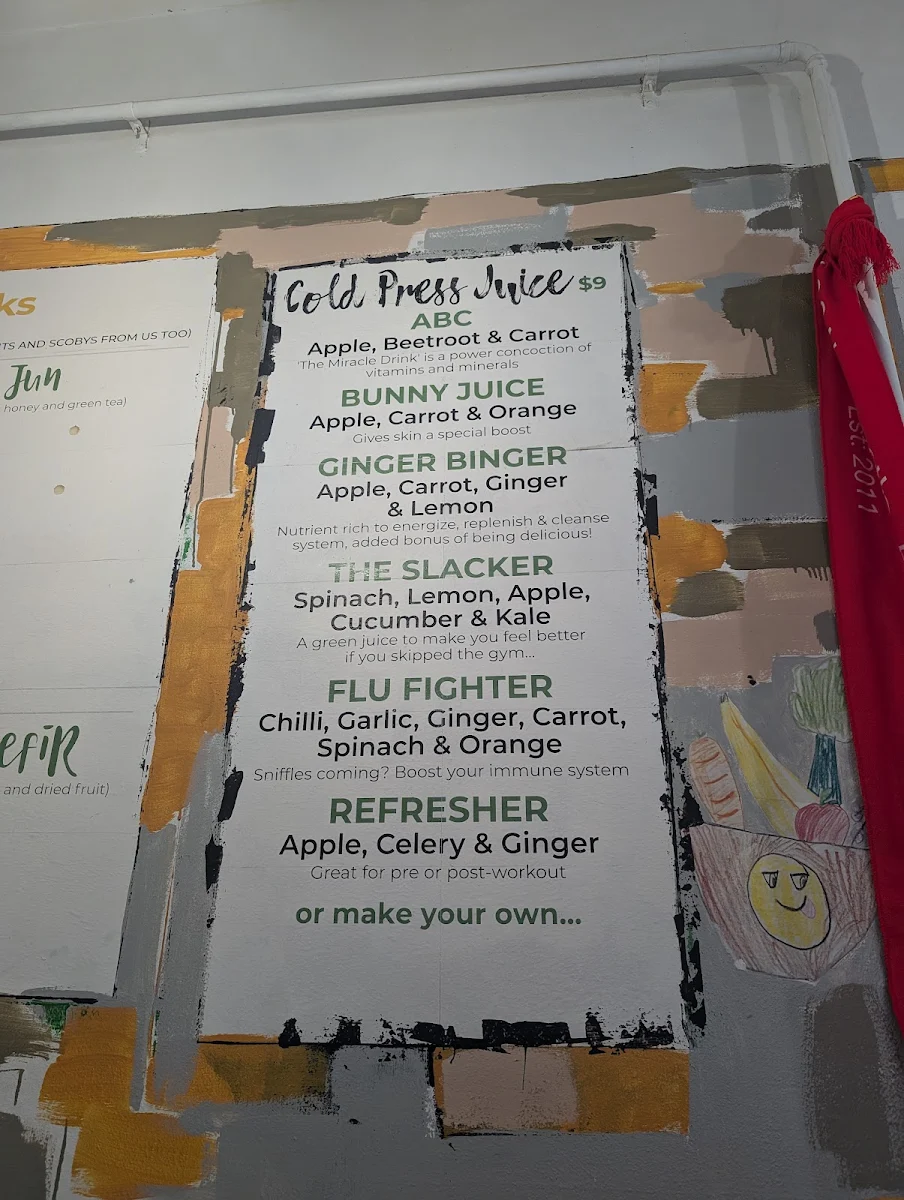 ks
TS AND SCOBYS FROM US TOO)
Jun
honey and green tea)
efir
and dried fruit)
Cold Press Juice $9
ABC
Apple, Beetroot & Carrot
'The Miracle Drink' is a power concoction of
vitamins and minerals
BUNNY JUICE
Apple, Carrot & Orange
Gives skin a special boost
GINGER BINGER
Apple, Carrot, Ginger
& Lemon
Nutrient rich to energize, replenish & cleanse
system, added bonus of being delicious!
THE SLACKER
Spinach, Lemon, Apple,
Cucumber & Kale
A green juice to make you feel better
if you skipped the gym...
FLU FIGHTER
Chilli, Garlic, Ginger, Carrot,
Spinach & Orange
Sniffles coming? Boost your immune system
REFRESHER
Apple, Celery & Ginger
Great for pre or post-workout
or make your own...
Est. 2011